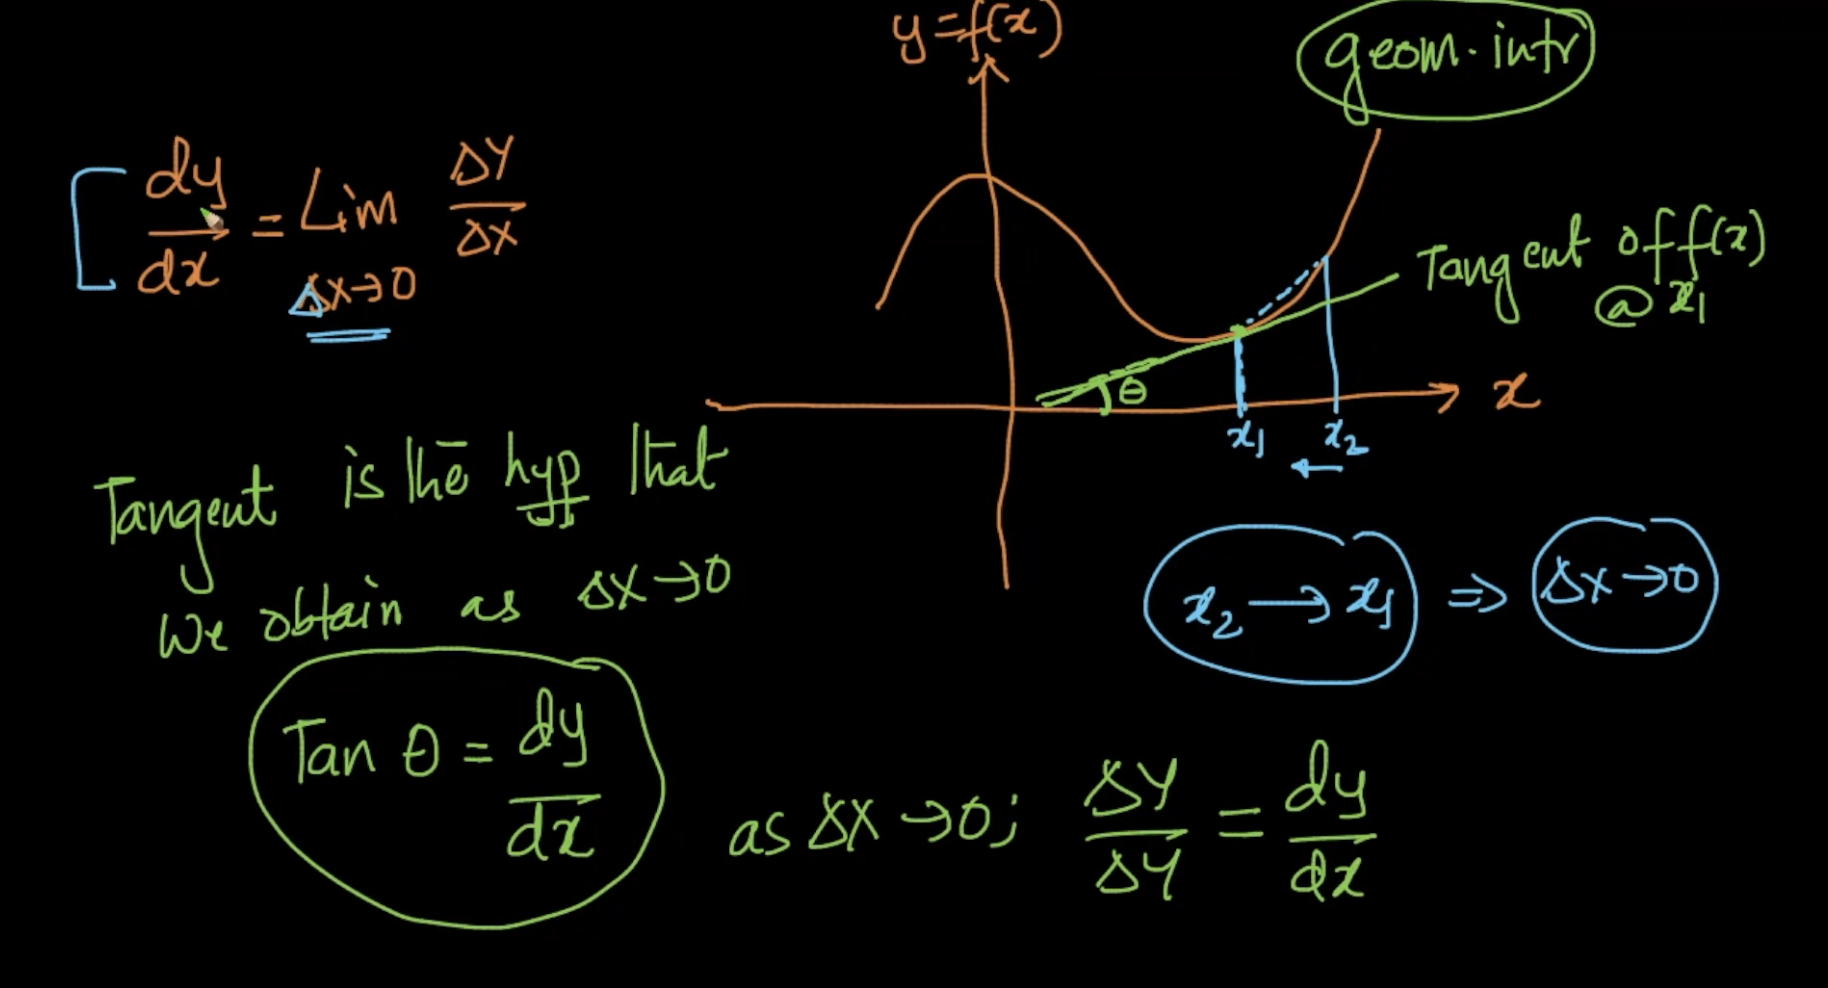 y=f(x)
geom. intr
dy/dx = Lim ΔY/ΔX
Δx→0
Tangent of f(x)
@ x1
θ
x
x1 x2
←
Tangent is the hyp that
We obtain as ΔX→0
x2 → x1 ⇒ Δx→0
Tan θ = dy/dx
as ΔX→0; ΔY/ΔY = dy/dx